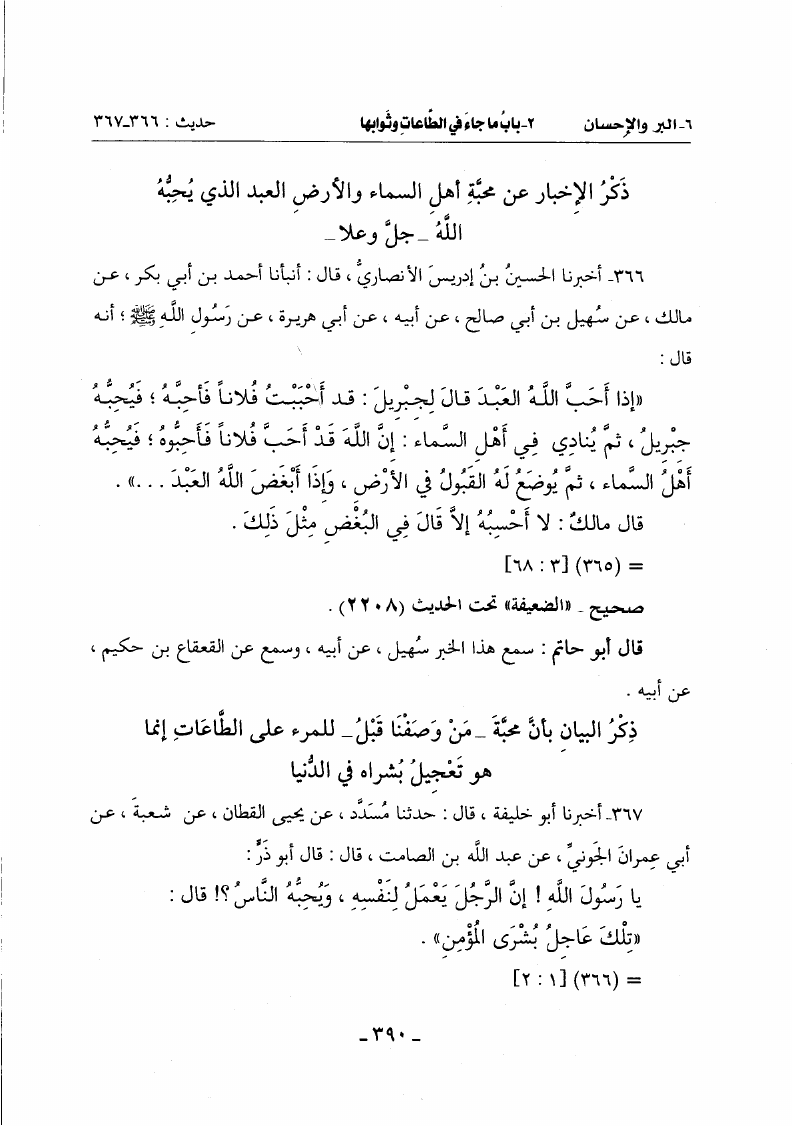 ٦- البر والإحسان ٢- بابُ ما جاءَ في الطَّاعاتِ وثَوابِها حديث : ٣٦٦-٣٦٧
ذَكْرُ الإخبار عن محبَّةِ أهلِ السماء والأرضِ العبد الذي يُحِبُّهُ
اللَّهُ _ جلَّ وعلا _
٣٦٦- أخبرنا الحسينُ بنُ إدريسَ الأنصاريُّ ، قال : أنبأنا أحمد بن أبي بكر ، عن
مالك ، عن سُهيل بن أبي صالح ، عن أبيه ، عن أبي هريرة ، عن رَسُولِ اللَّهِ ﷺ ؛ أنه
قال :
«إذا أَحَبَّ اللَّهُ العَبْدَ قالَ لِجِبْرِيلَ : قد أَحْبَبْتُ فُلاناً فَأَحِبَّهُ ؛ فَيُحِبُّهُ
جِبْرِيلُ ، ثمَّ يُنادِي فِي أَهْلِ السَّماء : إنَّ اللَّهَ قَدْ أَحَبَّ فُلاناً فَأَحِبُّوهُ ؛ فَيُحِبُّهُ
أَهْلُ السَّماء ، ثمَّ يُوضَعُ لَهُ القَبُولُ في الأَرْضِ ، وَإِذَا أَبْغَضَ اللَّهُ العَبْدَ ...» .
قال مالكٌ : لا أَحْسِبُهُ إلاَّ قَالَ فِي البُغْضِ مِثْلَ ذَلِكَ .
= (٣٦٥) [٣ : ٦٨]
صحيح ـ «الضعيفة» تحت الحديث (٢٢٠٨) .
قال أبو حاتم : سمع هذا الخبر سُهيل ، عن أبيه ، وسمع عن القعقاع بن حكيم ،
عن أبيه .
ذِكْرُ البيان بأنَّ محبَّةَ _ مَنْ وَصَفْنَا قَبْلُ _ للمرء على الطَّاعَاتِ إنما
هو تَعْجِيلُ بُشراه في الدُّنيا
٣٦٧- أخبرنا أبو خليفة ، قال : حدثنا مُسَدَّد ، عن يحيى القطان ، عن شعبةَ ، عن
أبي عِمرانَ الجَونيِّ ، عن عبد الله بن الصامت ، قال : قال أبو ذَرٍّ :
يا رَسُولَ اللَّهِ ! إنَّ الرَّجُلَ يَعْمَلُ لِنَفْسِهِ ، وَيُحِبُّهُ النَّاسُ؟! قال :
«تِلْكَ عَاجِلُ بُشْرَى الْمُؤْمِنِ» .
= (٣٦٦) [١ : ٢]
_ ٣٩٠ _